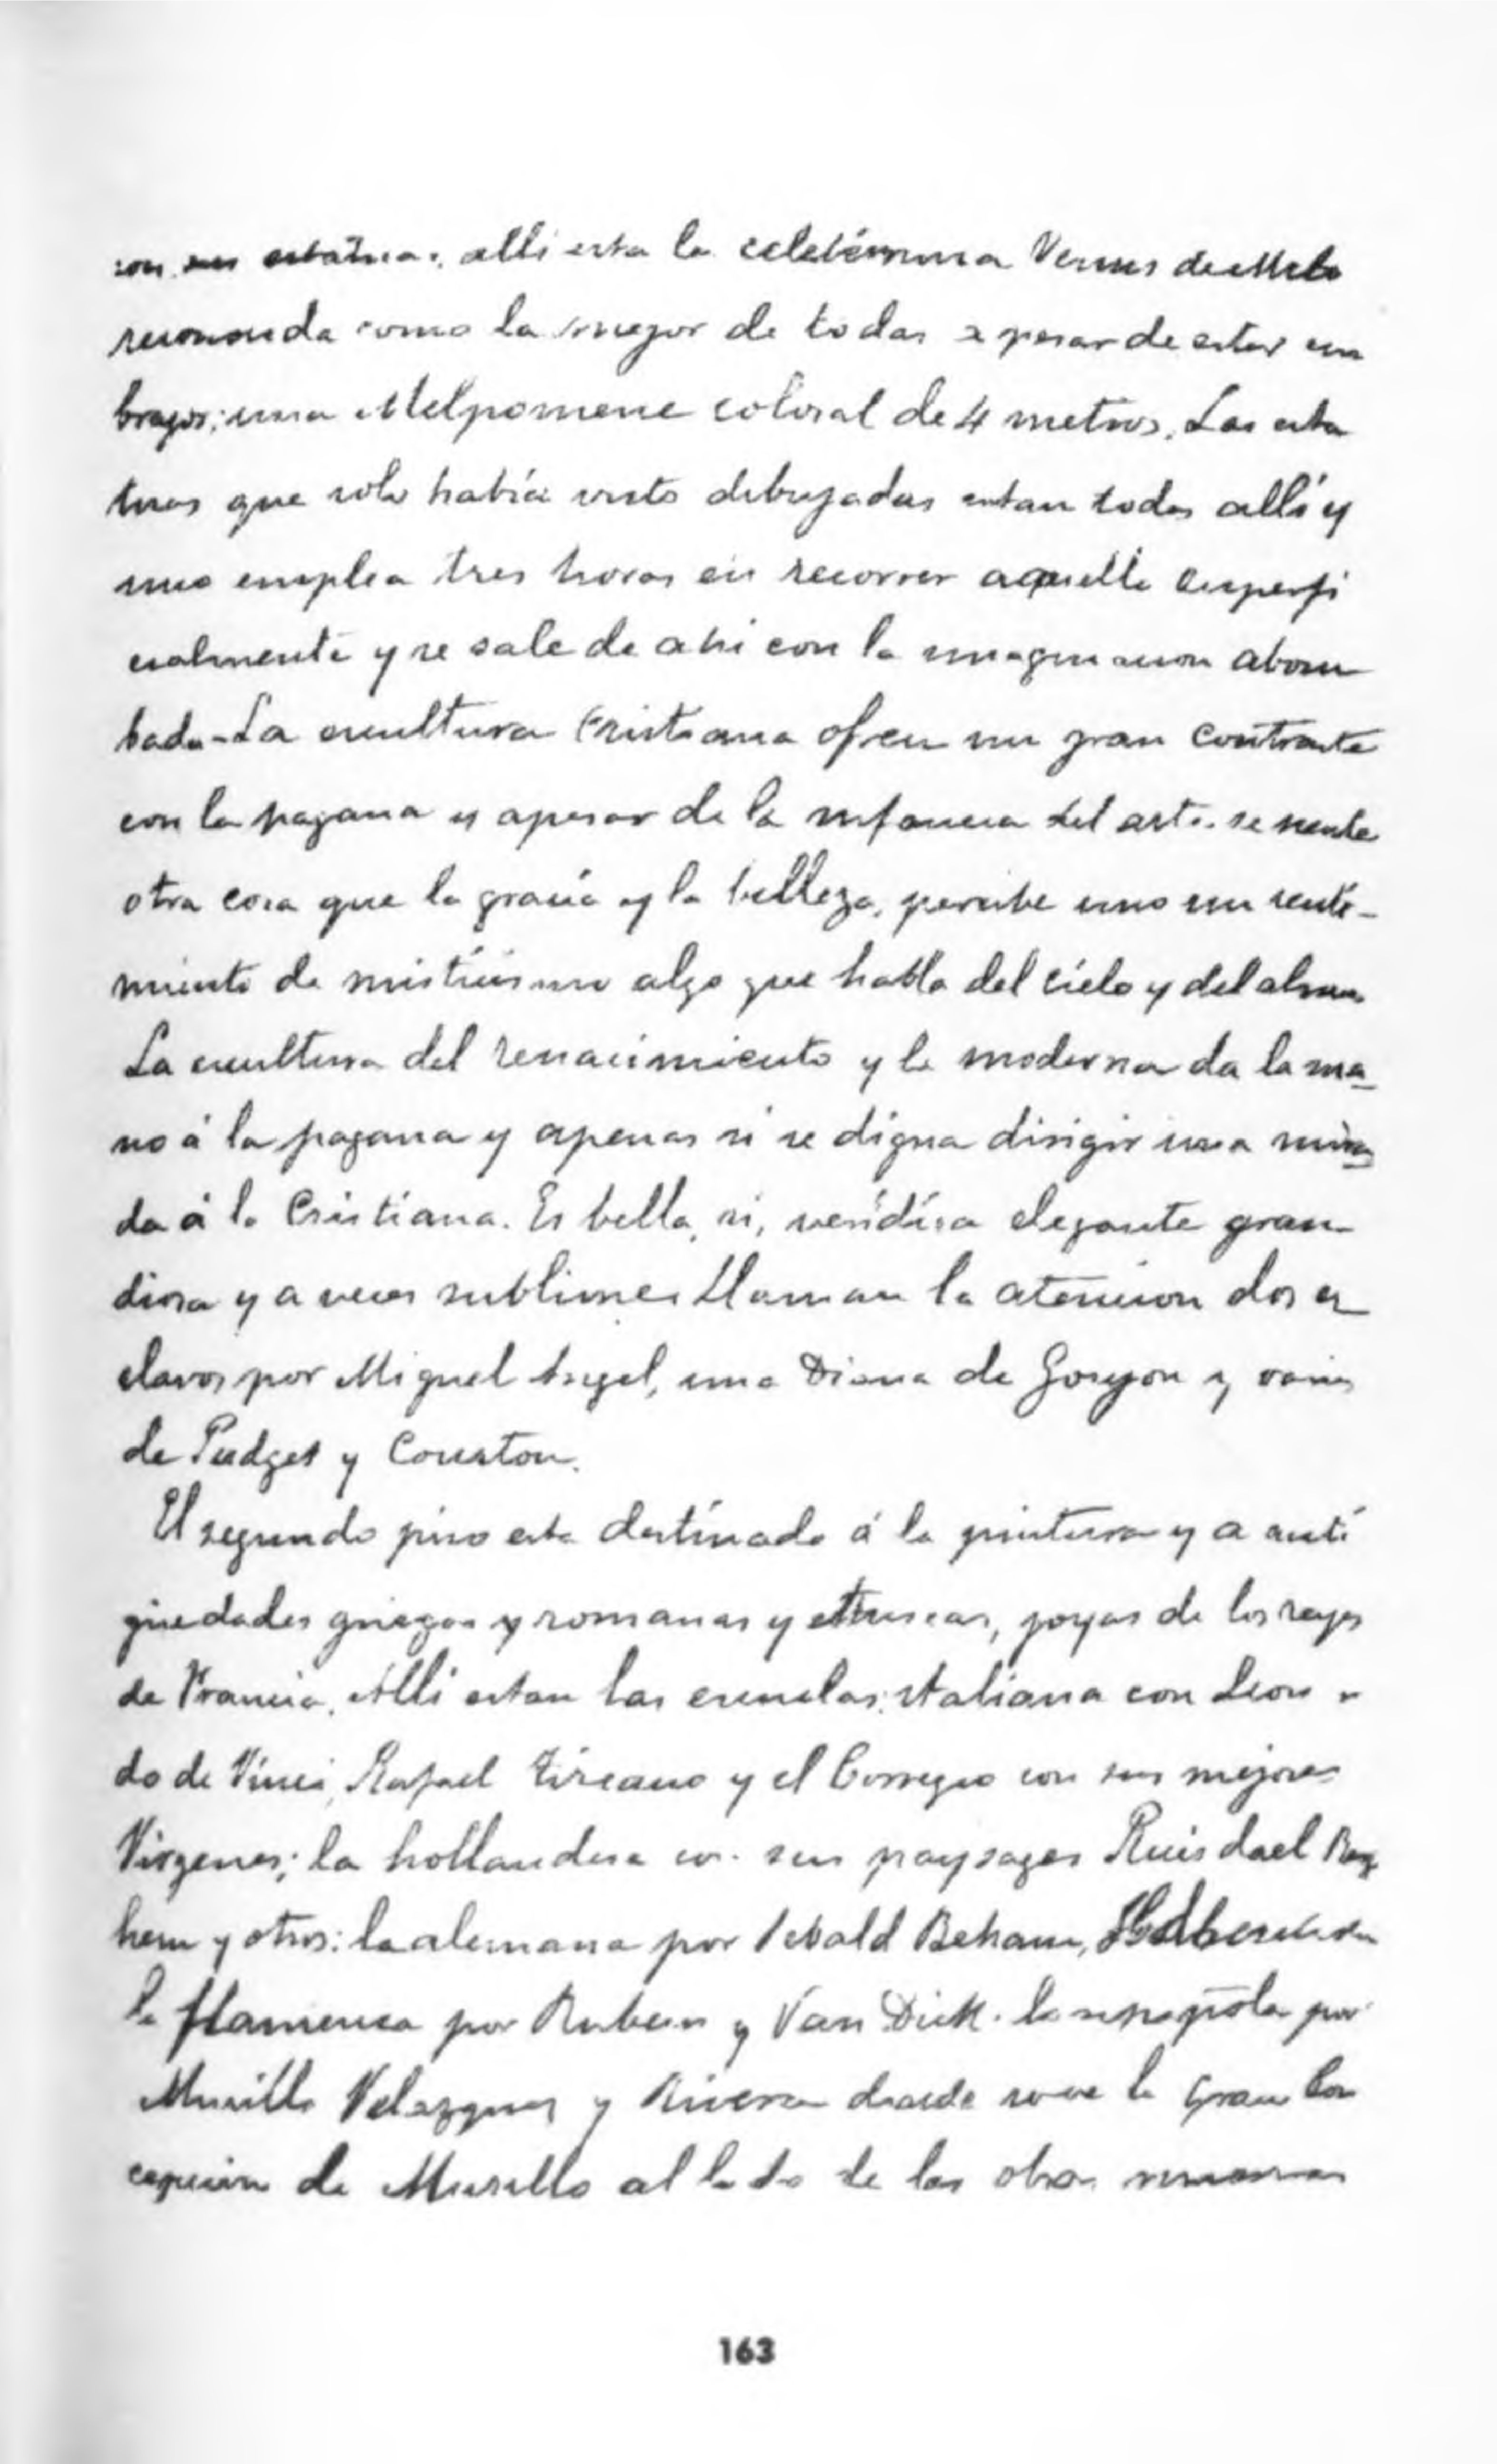 con sus estatuas, alli esta la celebérrima Venus de Milo
reconocida como la mejor de todas a pesar de estar sin
brazos; una Melpomene colosal de 4 metros. Las esta
tuas que solo había visto dibujadas estan todas allí y
uno emplea tres horas en recorrer aquello superfi
cialmente y se sale de ahi con la imaginacion abom
bada-La escultura Cristiana ofrece un gran contraste
con la pagana y apesar de la infancia del arte se siente
otra cosa que la gracia y la belleza, percibe uno un senti-
miento de misticismo algo que habla del cielo y del alma
La escultura del renacimiento y la moderna da la ma_
no á la pagana y apenas si se digna dirigir una mira
da á la Cristiana. Es bella, si, verídica elegante gran
diosa y a veces sublime Llaman la atencion dos es
clavos por Miguel Angel, una Diana de Goujon y varias
de Pudget y Couston.
El segundo piso esta destinado á la pintura y a anti
güedades griegas y romanas y etruscas, joyas de los reyes
de Francia. Alli estan las escuelas: italiana con Leonar
do de Vinci, Rafael Ticiano y el Correggio con sus mejores
Virgenes; la hollandesa con sus paysages Ruisdael Berg
hem y otros: la alemana por Sebald Beham,
la flamenca por Rubens y Van Dick. la española por
Murillo Velazquez y Rivera donde se ve la gran Con
cepcion de Murillo al lado de las otras
163